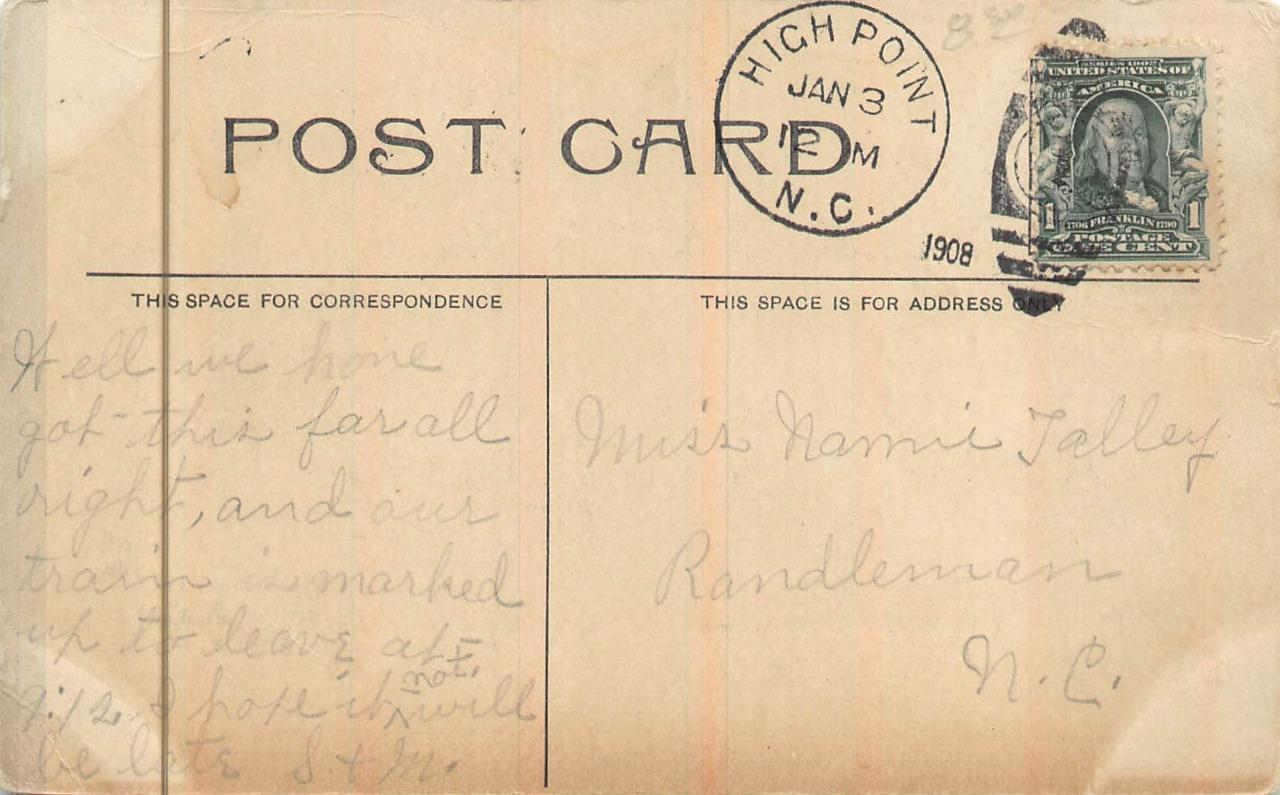 POST CARD
HIGH POINT
JAN 3
12 M
N.C.
1908
SERIES 1902
UNITED STATES OF
AMERICA
1706 FRANKLIN 1790
1 1
POSTAGE
ONE CENT
THIS SPACE FOR CORRESPONDENCE
THIS SPACE IS FOR ADDRESS ONLY
Well we have
got this far all
right, and our
train is marked
up to leave at
:12. I hope it not will
be late S & M.
Miss Nannie Talley
Randleman
N.C.